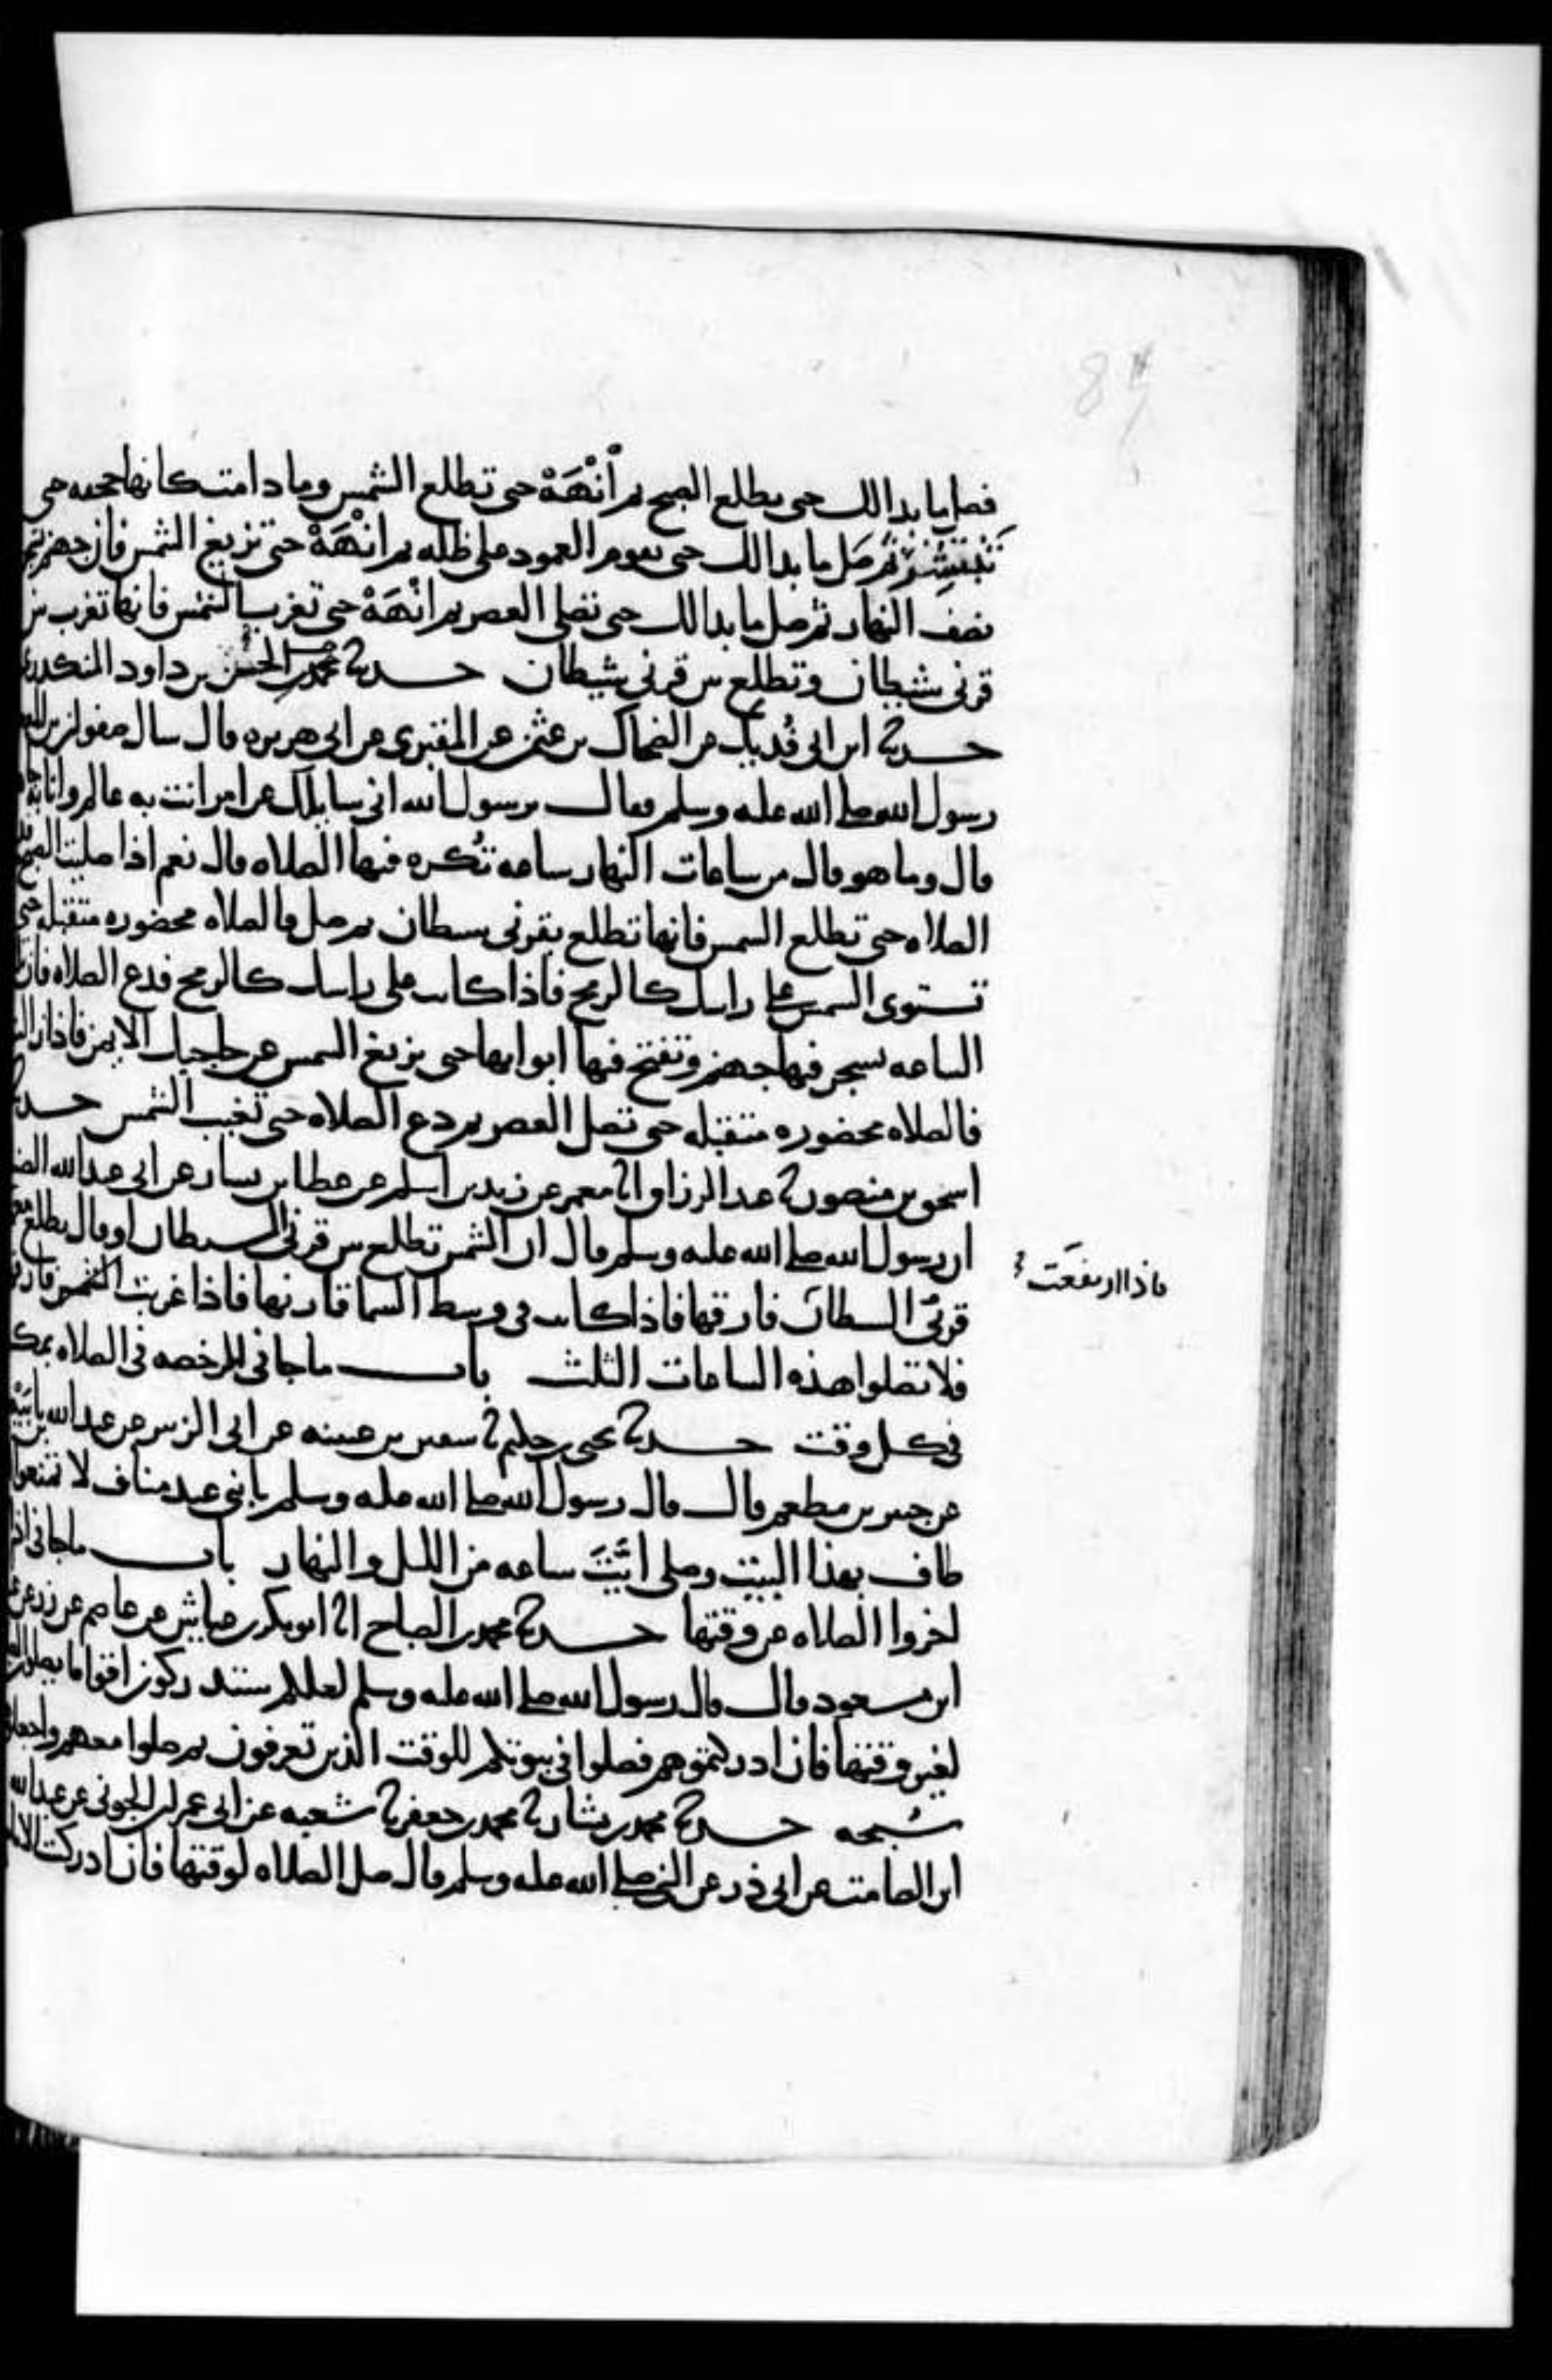 84
فصل ما بدا لك حتى يطلع الصبح ثم أَنْهَهْ حتى تطلع الشمس وما دامت كانها حجفه حتى
تَنْتَشِرَ ثم صَل ما بدا لك حتى يقوم العمود على ظله ثم انْهَهْ حتى تزيغ الشمس فان جهنم
نصفَ النهار ثم صل ما بدا لك حتى تصلي العصر ثم انْهَهْ حتى تغرب الشمس فانها تغرب بين
قرني شيطان وتطلع بين قرني شيطان حدثنا الحسن بن داود المنكدري
حدثنا ابن ابي فُديك عن الضحاك بن عثمن عن المقبري عن ابي هريره قال سال صفوان بن
رسول الله صلى الله عليه وسلم فقال يرسول الله اني سايلك عن امر انت به عالم وانا به
قال وما هو قال من ساعات النهار ساعه تُكره فيها الصلاه قال نعم اذا صليت الصبح
الصلاه حتى تطلع الشمس فانها تطلع بقرني شيطان ثم صل فالصلاه محضوره متقبله حتى
تستوي الشمس على راسك كالرمح فاذا كانت على راسك كالرمح فدع الصلاه فان
الساعه تسجر فيها جهنم وتفتح فيها ابوابها حتى يزيغ الشمس عن حاجبك الايمن فاذا
فالصلاه محضوره متقبله حتى تصل العصر ثم دع الصلاه حتى تغيب الشمس حدثنا
اسحق بن منصور نا عبد الرزاق انا معمر عن زيد بن اسلم عن عطا بن يسار عن ابي عبد الله
ان رسول الله صلى الله عليه وسلم قال ان الشمس تطلع بين قرني الشيطان او قال يطلع
فاذا ارتفعت
قرنَي الشيطان فارقها فاذا كانت في وسط السما قارنها فاذا غربت الشمس
فلا تصلوا هذه الساعات الثلث باب ما جا في الرخصه في الصلاه بمكه
في كل وقت حدثنا يحيى بن حكيم نا سفين بن عيينه عن ابي الزبير عن عبد الله بن بابَيْه
عن جبير بن مطعم قال قال رسول الله صلى الله عليه وسلم يا بني عبد مناف لا تمنعوا
طاف بهذا البيت وصلى ايَّتَ ساعه من الليل والنهار باب ما جا في اذا
اخروا الصلاه عن وقتها حدثنا محمد بن الصباح انا ابو بكر بن عياش عن عاصم عن زر عن
ابن مسعود قال قال رسول الله صلى الله عليه وسلم لعلكم ستدركون اقواما يصلون
لغير وقتها فان ادركتموهم فصلوا في بيوتكم للوقت الذين تعرفون ثم صلوا معهم واجعلوها
سُبحه حدثنا محمد بن بشار نا محمد بن جعفر نا شعبه عن ابي عمران الجوني عن عبد الله
ابن الصامت عن ابي ذر عن النبي صلى الله عليه وسلم قال صل الصلاه لوقتها فان ادركت